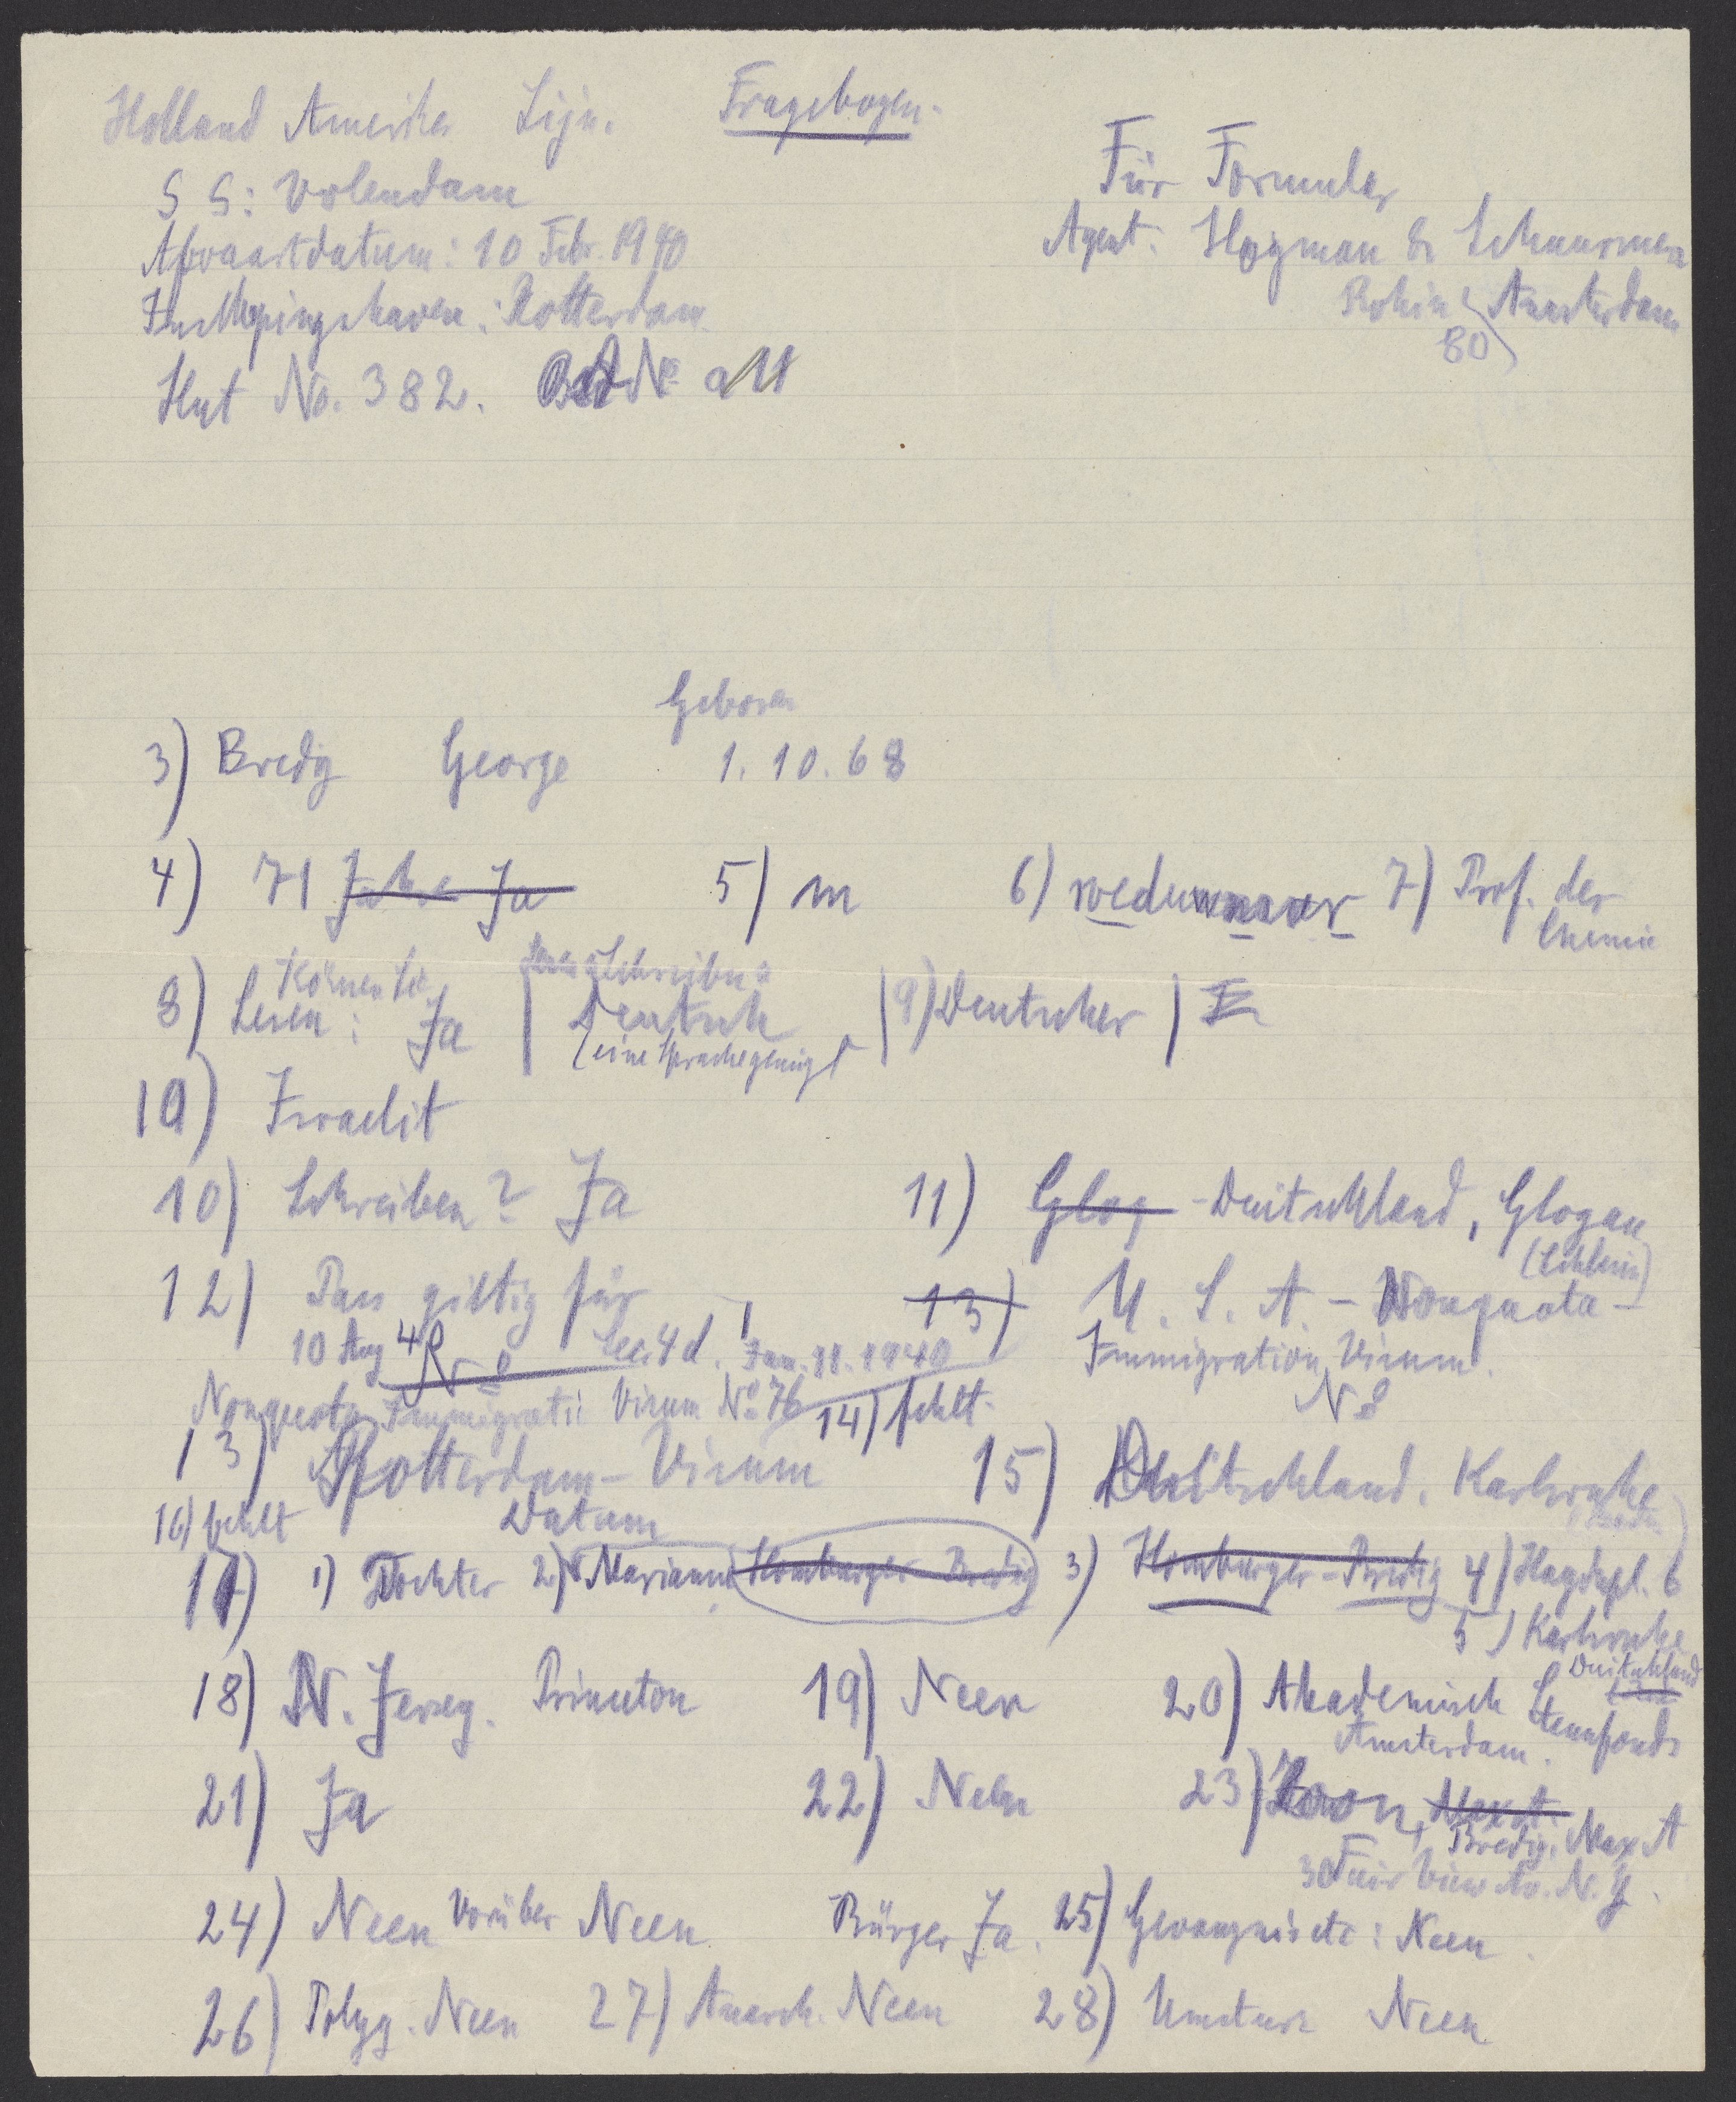 Holland Amerika Lijn. Fragebogen.
Für Formular
S S: Volendam
Agent: Hoyman & Schuurman
Afvaartdatum: 10 Febr. 1940
Rokin 80 Amsterdam
Inschepingshaven: Rotterdam
Hut No. 382. Bed No
Geboren
3) Bredig George 1. 10. 68
4) 71 5) m 6) weduwnaar 7) Prof. der Chemie
8) Können Sie Lesen: Ja Schreiben: Deutsch (eine Sprache genügt 9) Deutscher
10) Israelit
10) Schreiben? Ja 11) Glog - Deutschland, Glogau
12) Pass giltig für 13) U.S.A. - Nonquota -
10 Aug Jan. 11. 1940 Immigration Visum.
Nonquota Immigrati: Visum No 76 14) fehlt.
13) Rotterdam - Visum 15) Deutschland, Karlsruhe
16) fehlt Datum
17) 1) Tochter 2) Marianne Homburger-Bredig 3) Homburger-Bredig 4) Haydnpl. 6
5) Karlsruhe
Deutschland
18) N. Jersey. Princeton 19) Neen 20) Akademisch Steunfonds
Amsterdam.
21) Ja 22) Neen 23) Zoon, Max A
Bredig, Max A
View Av. N.Y.
24) Neen Vorüber Neen Bürger Ja. 25) Gevangnis etc: Neen.
26) Polyg. Neen 27) Anarch. Neen 28) Umsturz Neen